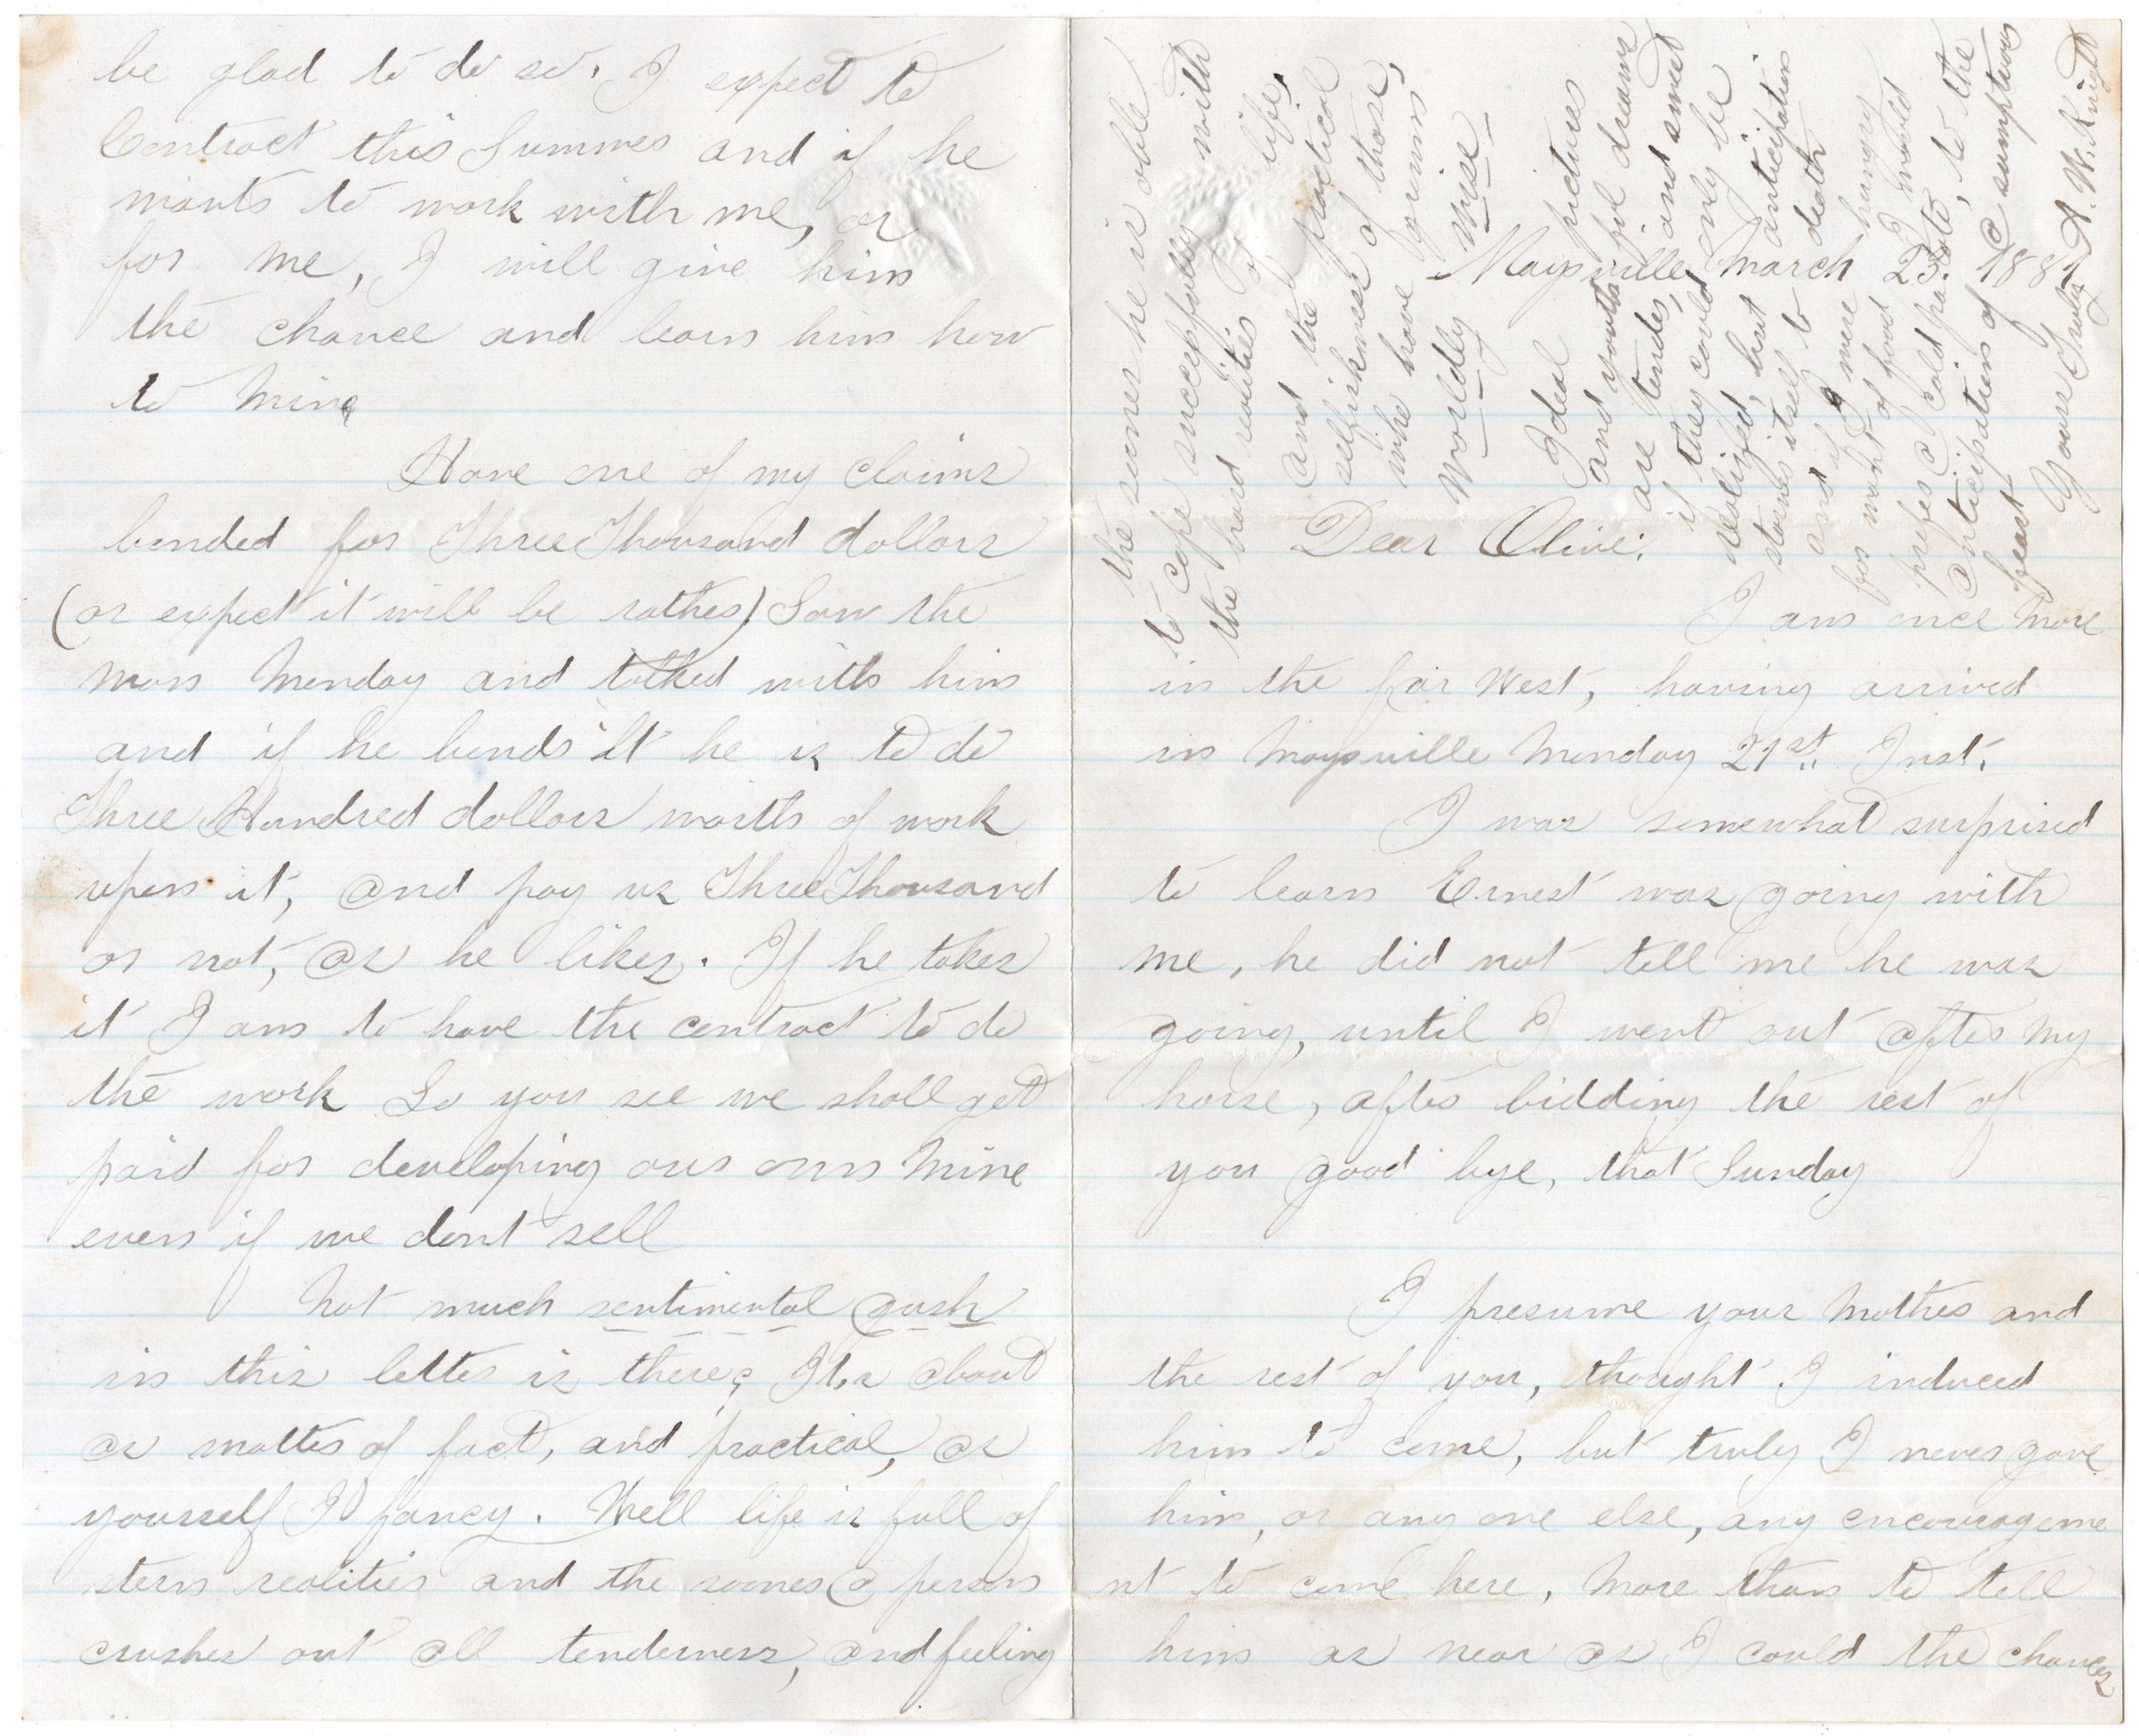 Maysville March 23d. 1881
Dear Olive:
I am once more
in the far West, having arrived
in Maysville Monday 21st. Inst.
I was somewhat surprised
to learn Ernest was going with
me, he did not tell me he was
going, until I went out after my
horse, after bidding the rest of
you good bye, that Sunday
I presume your Mother and
the rest of you, thought I induced
him to come, but truly I never gave
him, or any one else, any encourageme
nt to come here, More than to tell
him as near as I could the chances
be glad to do so. I expect to
Contract this Summer and if he
wants to work with me, or
for me, I will give him
the chance and learn him how
to Mine
Have one of my claims
bonded for Three Thousand dollars
(or expect it will be rather) Saw the
man Monday and talked with him
and if he bonds it he is to do
Three Hundred dollars worth of work
upon it, and pay us Three Thousand
or not, as he likes. If he takes
it I am to have the contract to do
the work So you see we shall get
paid for developing our own Mine
even if we dont sell
Not much sentimental gush
in this letter is there? Its about
as matter of fact, and practical, as
yourself I fancy. Well life is full of
stern realities and the sooner a person
crushes out all tenderness, and feeling
the sooner he is able
to cope successfully with
the hard realities of life,
and the practical
selfishness of those,
who have grown
Worldly Wise
Ideal pictures
and youthful dreams
are tender, and sweet
if they could only be
realized, but anticipation
starves itself to death
and if I were hungry
for want of food I would
prefer a cold potato, to the
anticipation of a sumptuous
feast
Yours Truly A. W. Knight